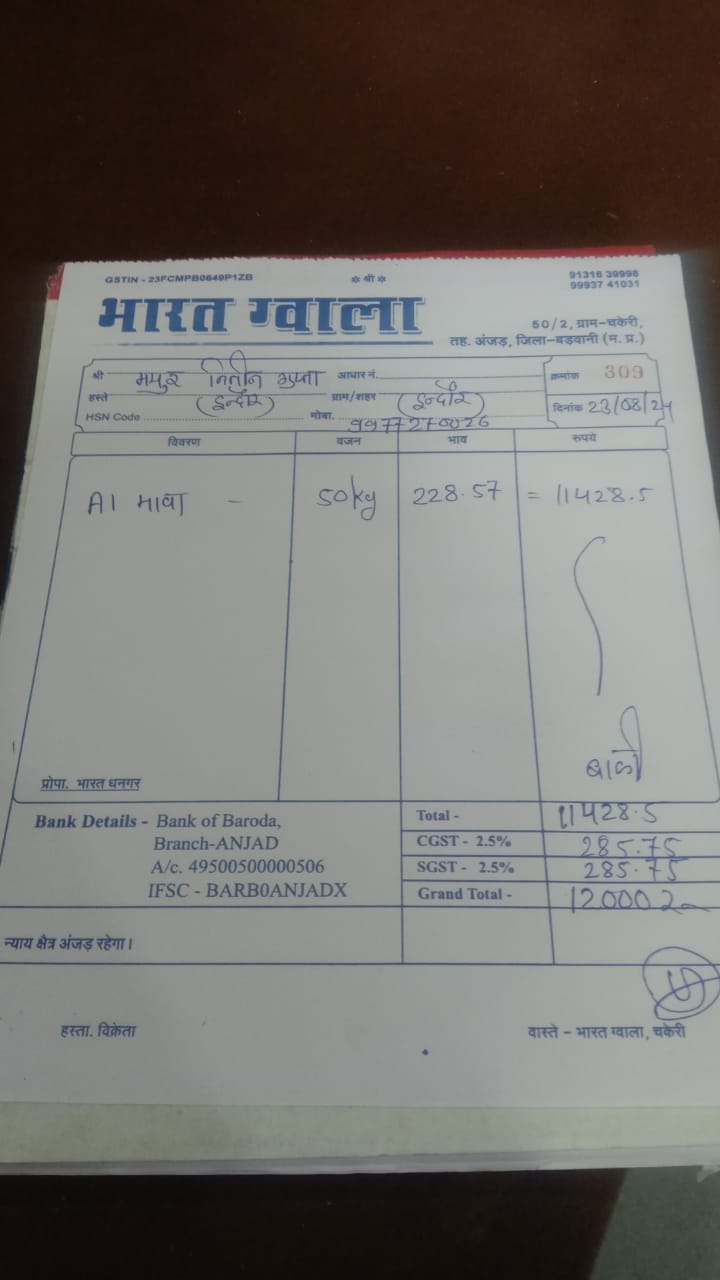 GSTIN - 23FCMPB0649P1ZB
❊ श्री ❊
91316 39998
99937 41031
भारत ग्वाला
50/2, ग्राम-चकेरी,
तह. अंजड़, जिला-बड़वानी (म. प्र.)
श्री मयुर नितीन गुप्ता आधार नं.
क्रमांक 309
हस्ते (इन्दौर) ग्राम/शहर (इन्दौर)
दिनांक 23/08/24
HSN Code मोबा. 9977270026
विवरण वजन भाव रुपये
A1 मावा - 50kg 228.57 = 11428.5
बाकी
प्रोपा. भारत धनगर
Bank Details - Bank of Baroda,
Branch-ANJAD
A/c. 49500500000506
IFSC - BARB0ANJADX
Total - 11428.5
CGST - 2.5% 285.75
SGST - 2.5% 285.75
Grand Total - 12000
न्याय क्षेत्र अंजड़ रहेगा।
हस्ता. विक्रेता
वास्ते - भारत ग्वाला, चकेरी